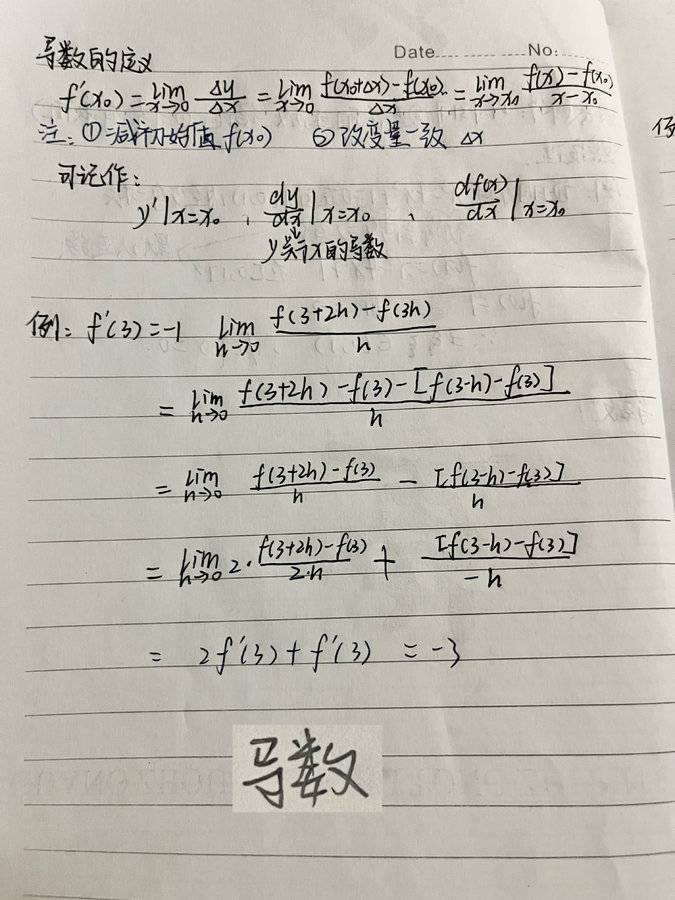 Date. No:
导数的定义
f'(x₀)=lim x→0 Δy/Δx = lim x→0 (f(x₀+Δx)-f(x₀))/Δx = lim x→x₀ (f(x)-f(x₀))/(x-x₀)
注:①减初始值f(x₀) ②改变量一致 Δx
可记作:
y'|x=x₀ , dy/dx|x=x₀ 、 df(x)/dx|x=x₀
y关于x的导数
例: f'(3)=-1 lim h→0 (f(3+2h)-f(3h))/h
= lim h→0 (f(3+2h)-f(3)-[f(3-h)-f(3)])/h
= lim h→0 (f(3+2h)-f(3))/h - [f(3-h)-f(3)]/h
= lim h→0 2·(f(3+2h)-f(3))/(2·h) + [f(3-h)-f(3)]/(-h)
= 2f'(3)+f'(3) =-3
导数